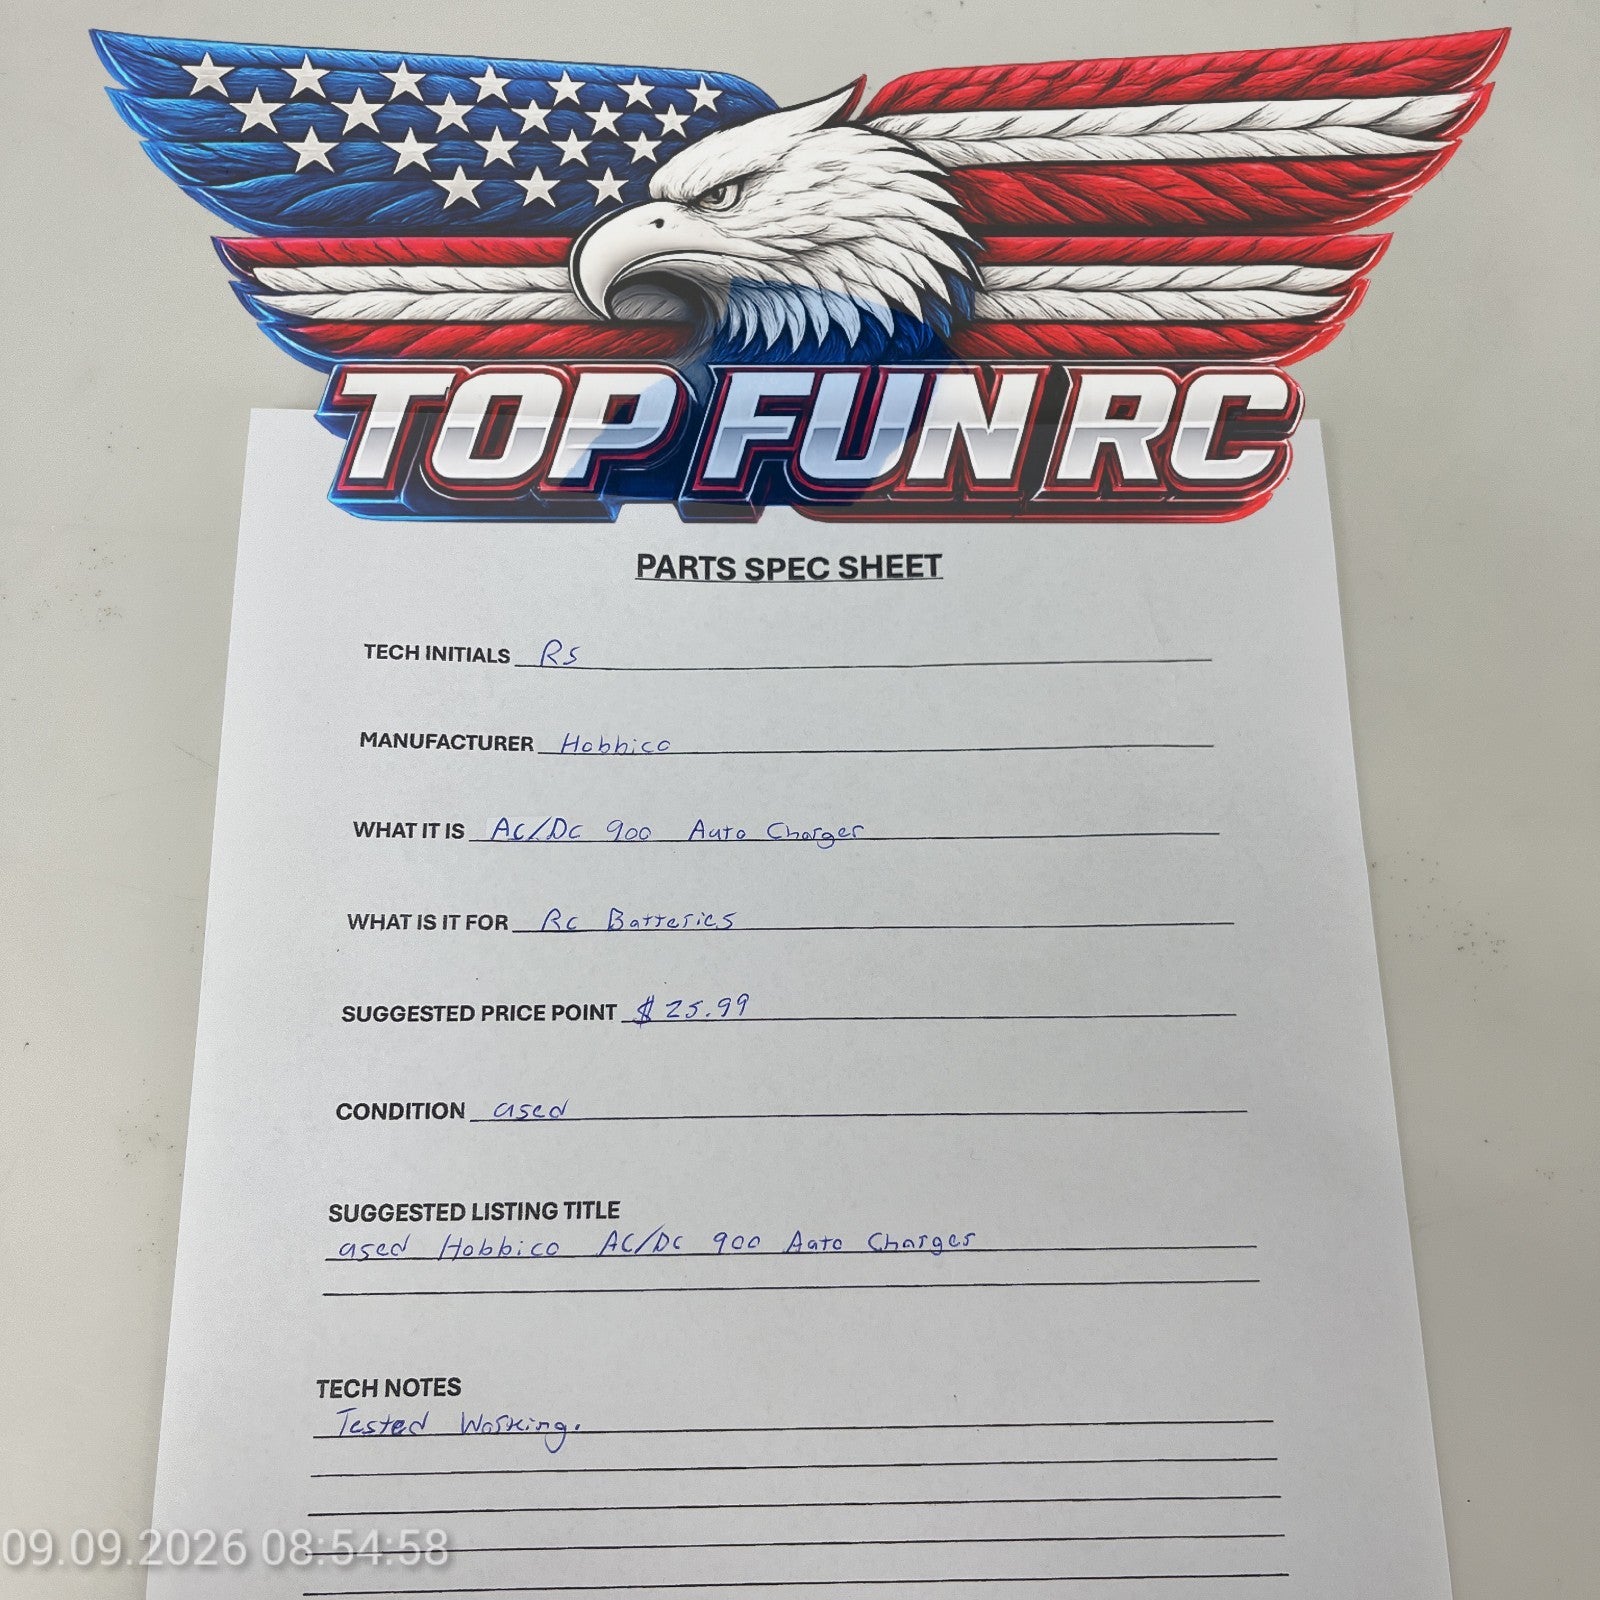 TOP FUN RC
PARTS SPEC SHEET
TECH INITIALS RS
MANUFACTURER Hobbico
WHAT IT IS AC/DC 900 Auto Charger
WHAT IS IT FOR Rc Batteries
SUGGESTED PRICE POINT $25.99
CONDITION used
SUGGESTED LISTING TITLE
used Hobbico AC/DC 900 Auto Charger
TECH NOTES
Tested Working.
09.09.2026 08:54:58